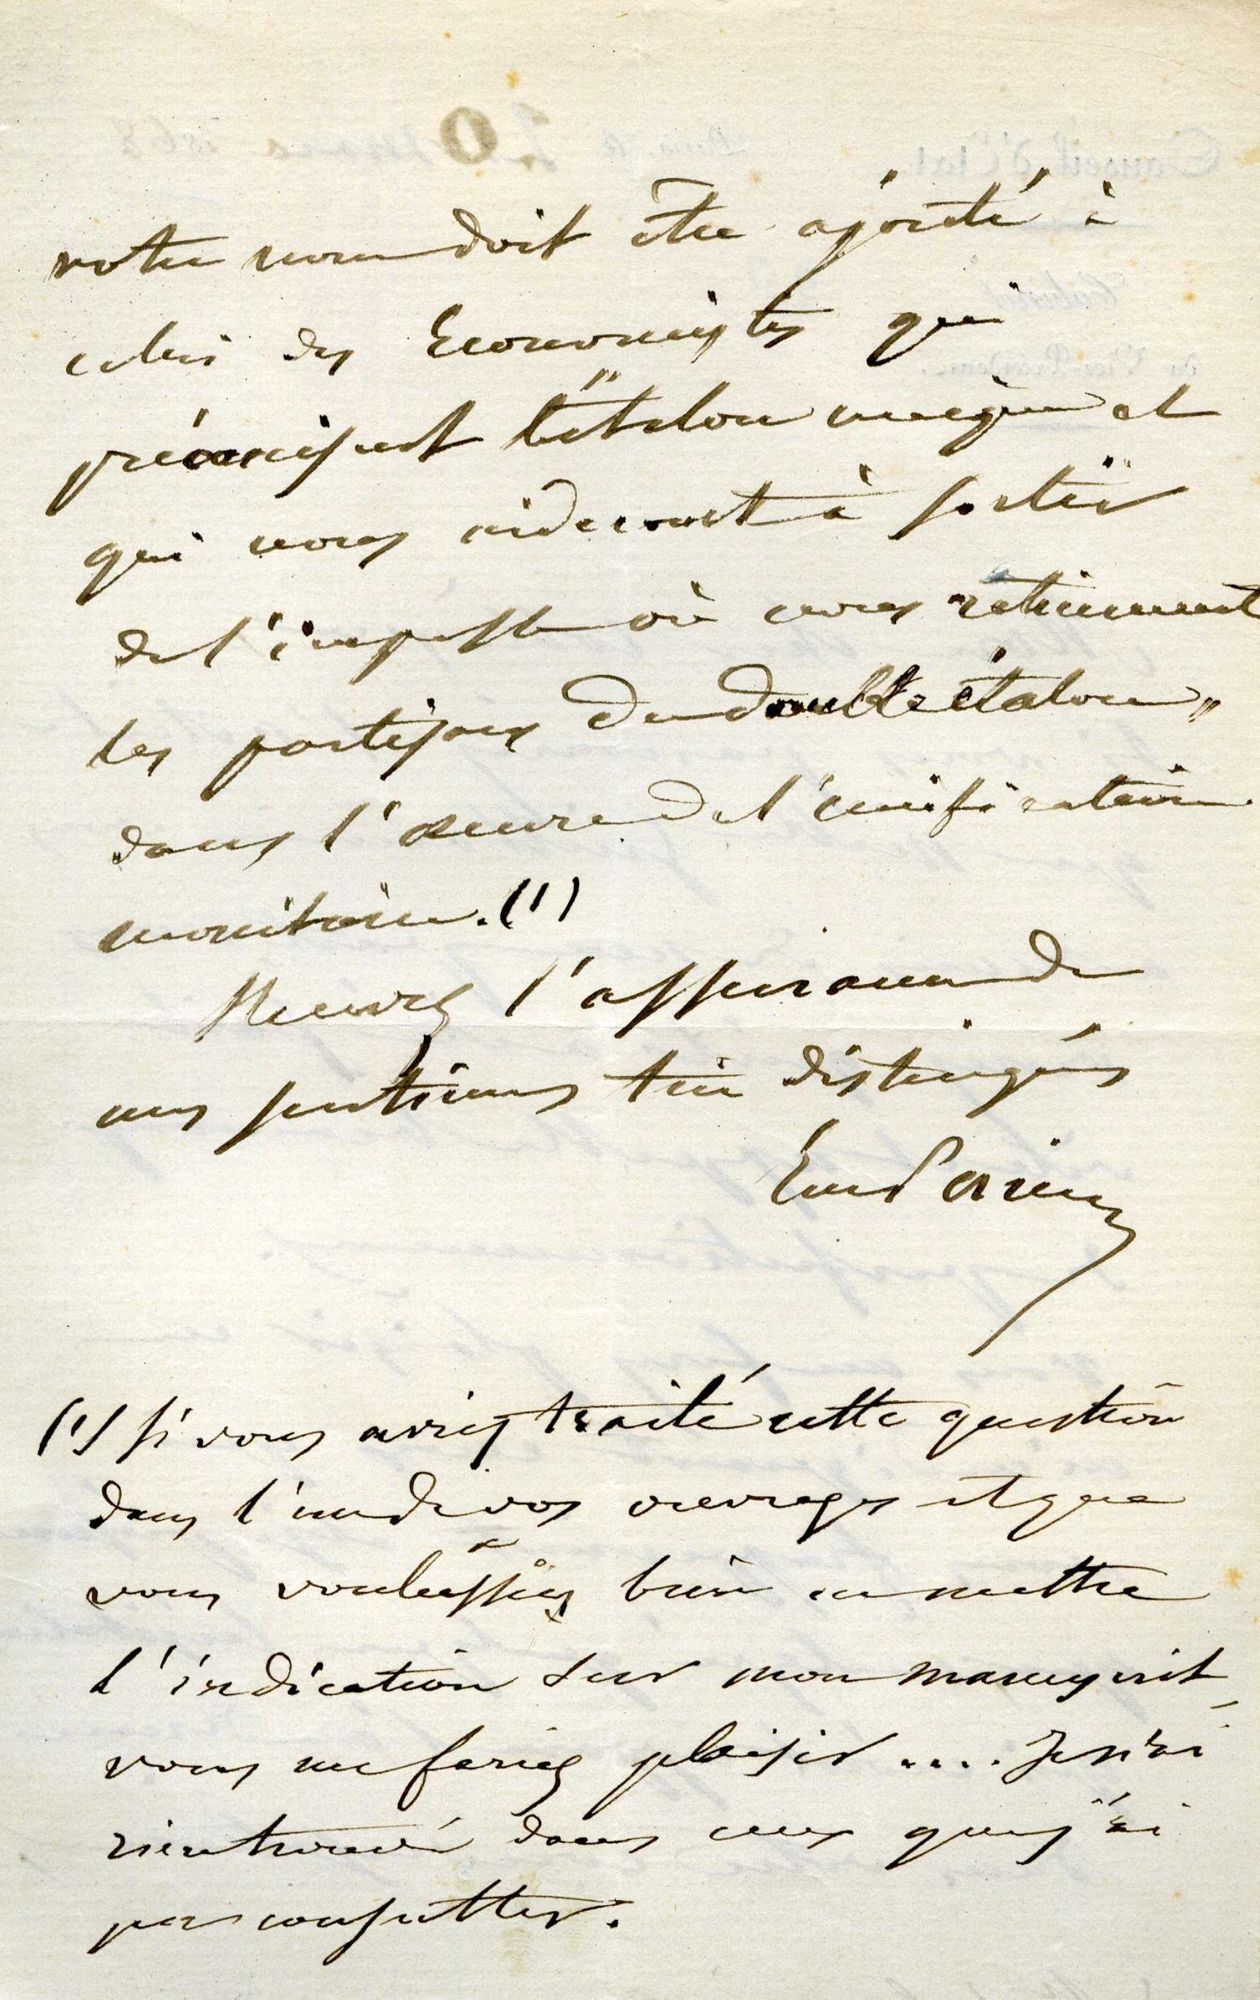 votre nom doit être ajouté à
celui des Économistes qui
préconisent l'étalon unique et
qui nous aideront à sortir
de l'impasse où nous retiennent
les partisans du double étalon
dans l'œuvre de l'unification
monétaire. (1)
Recevez l'assurance de
mes sentimens très distingués
(1) Si vous aviez traité cette question
dans l'un de vos ouvrages et que
vous voulussiez bien en mettre
l'indication sur mon manuscrit
vous me feriez plaisir .... Je n'ai
rien trouvé dans ceux que j'ai
pu consulter.